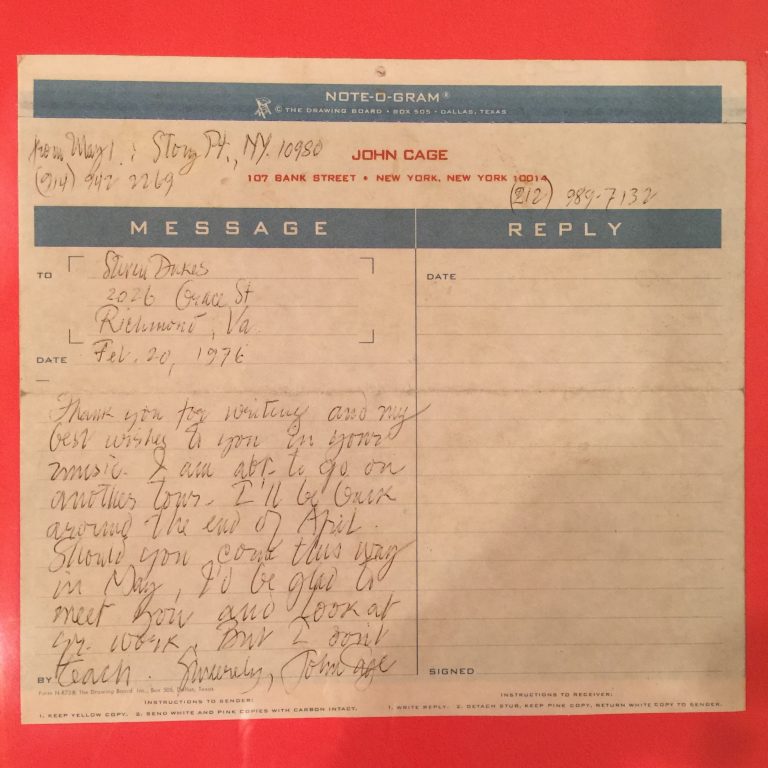 NOTE-O-GRAM®
© THE DRAWING BOARD • BOX 505 • DALLAS, TEXAS
from May 1 : Stony Pt., NY. 10980
(914) 942 2269
JOHN CAGE
107 BANK STREET • NEW YORK, NEW YORK 10014
(212) 989-7132
MESSAGE
TO
Steven Dukes
2026 Grace St
Richmond, Va.
DATE
Feb. 20, 1976
Thank you for writing and my
best wishes to you in your
music. I am abt. to go on
another tour. I'll be back
around the end of April.
Should you come this way
in May, I'd be glad to
meet you and look at
yr. work. But I don't
BY
teach. Sincerely, John Cage
Form N-R73® The Drawing Board, Inc., Box 505, Dallas, Texas
INSTRUCTIONS TO SENDER:
1. KEEP YELLOW COPY. 2. SEND WHITE AND PINK COPIES WITH CARBON INTACT.
REPLY
DATE
SIGNED
INSTRUCTIONS TO RECEIVER:
1. WRITE REPLY. 2. DETACH STUB, KEEP PINK COPY, RETURN WHITE COPY TO SENDER.